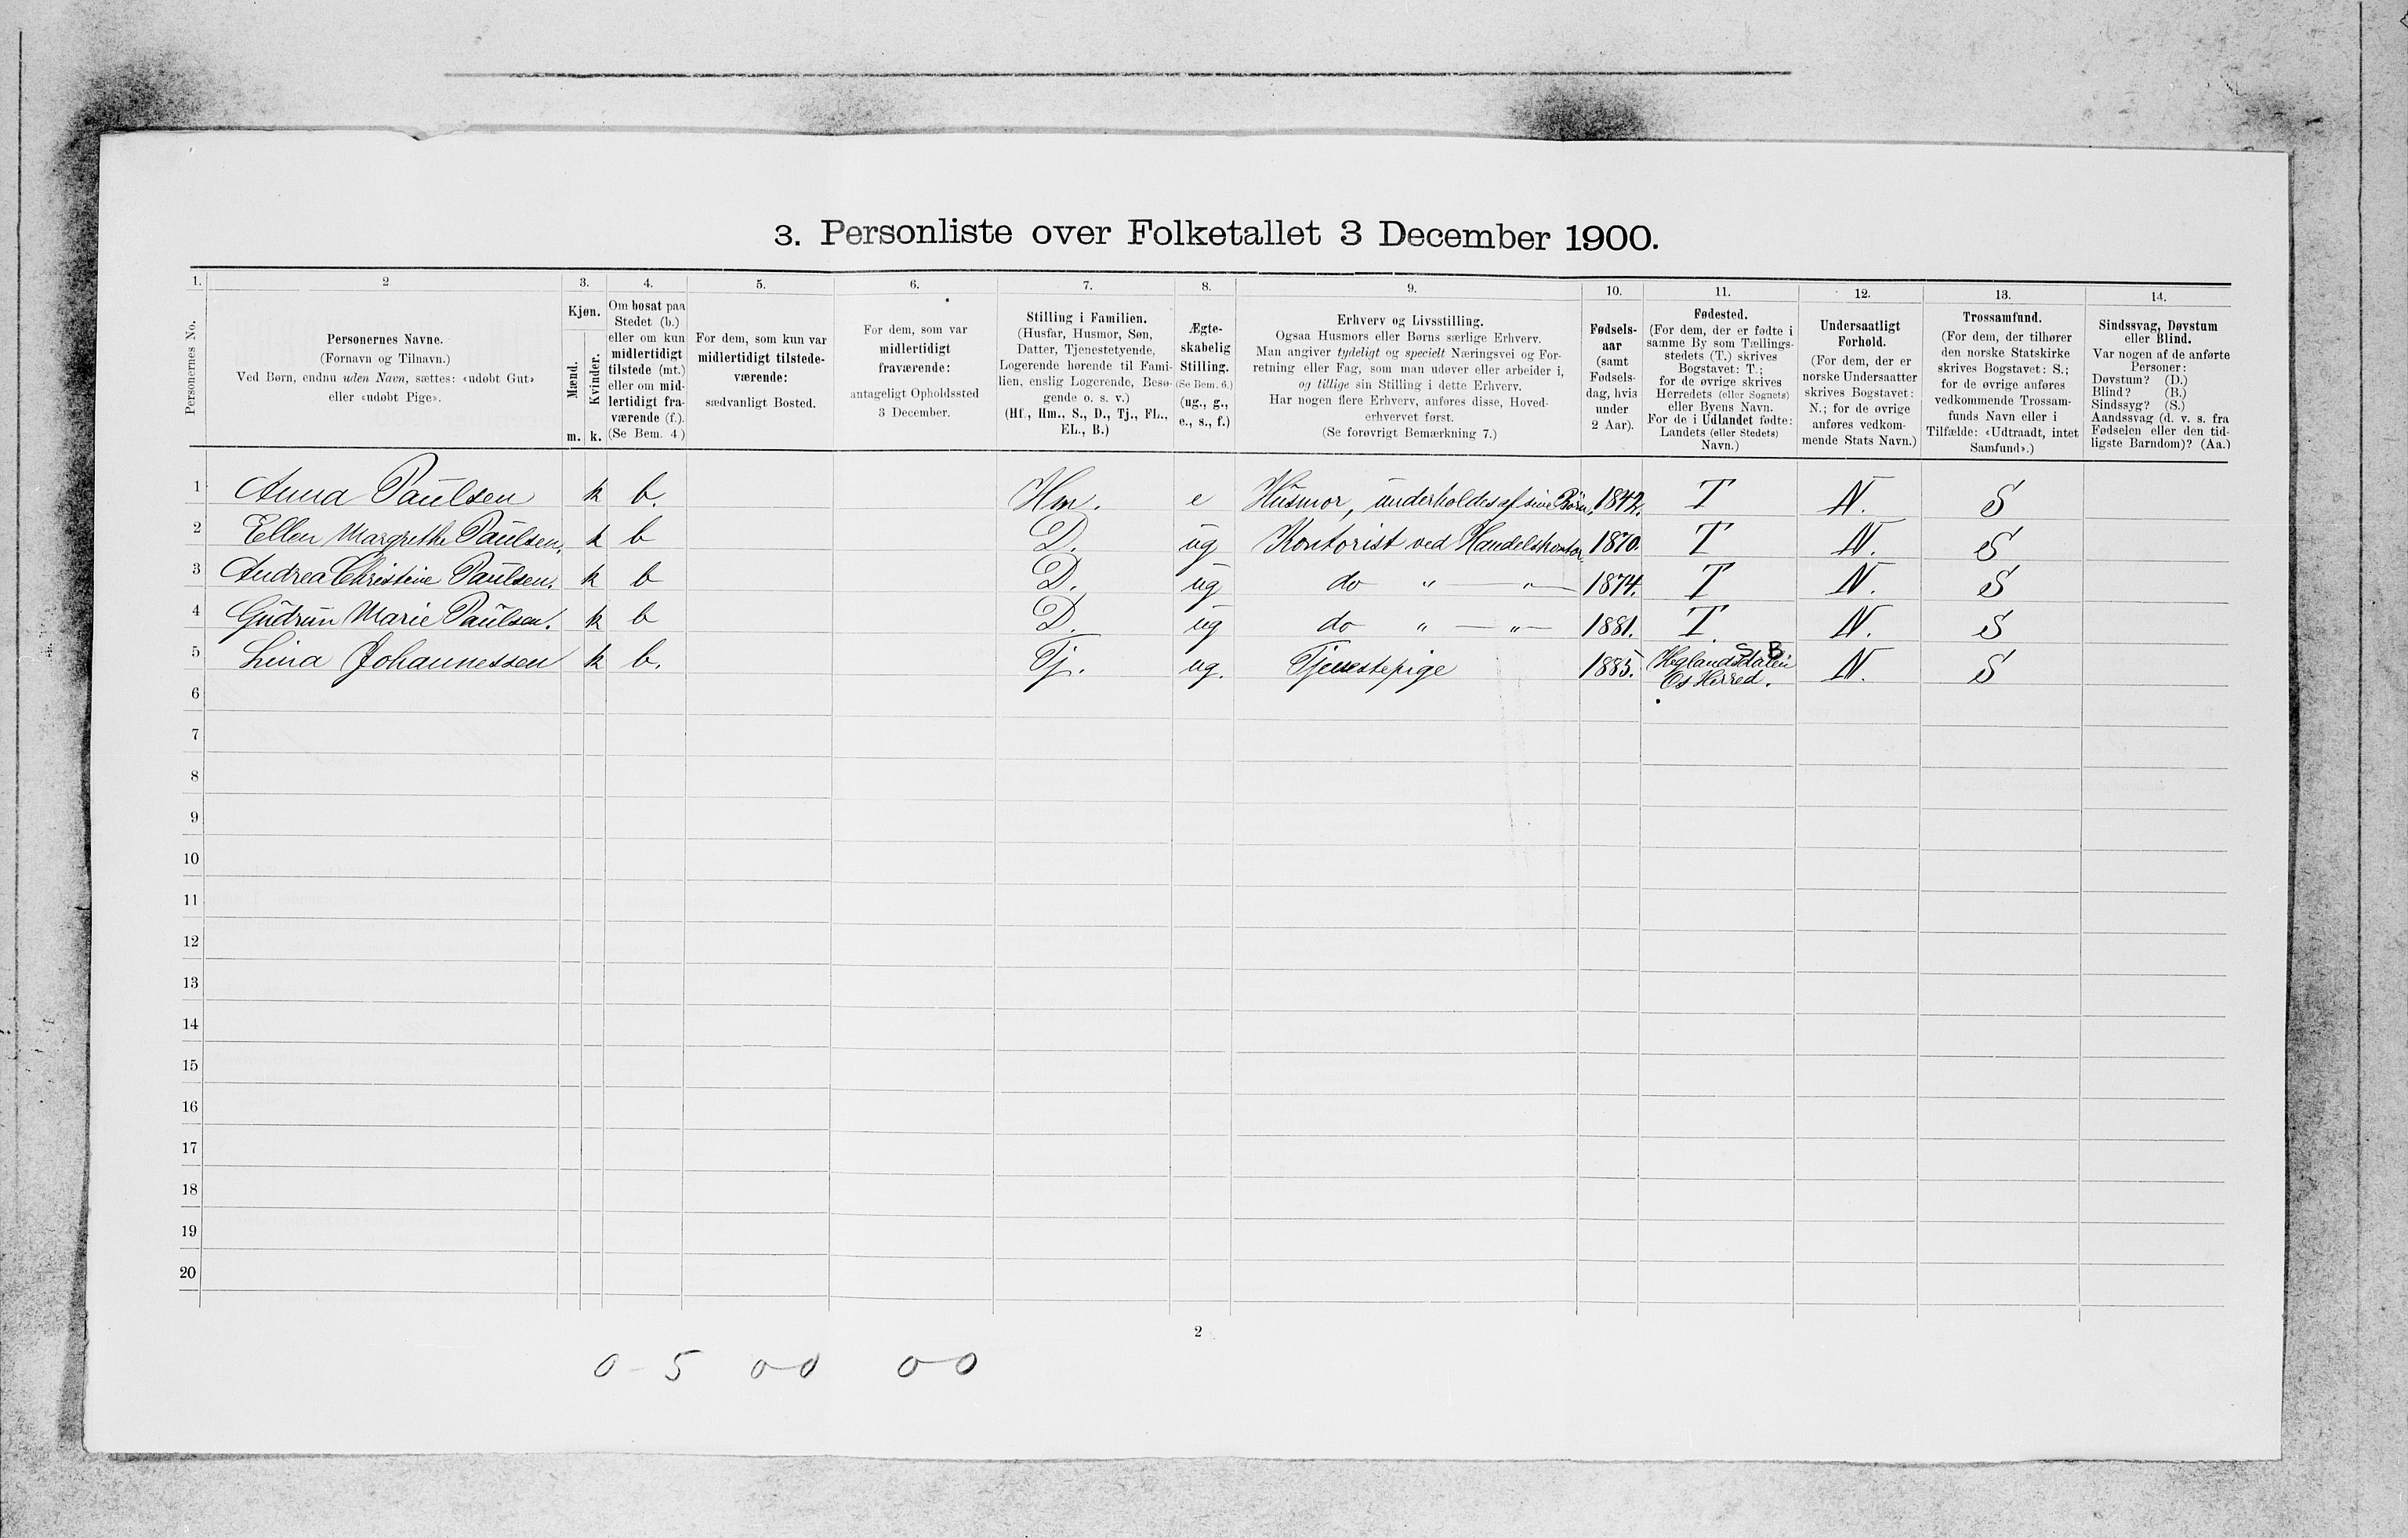 3. Personliste over Folketallet 3 December 1900.
1. 2 3. 4. 5. 6. 7. 8. 9. 10. 11. 12. 13. 14.
Personernes No.
Personernes Navne.
(Fornavn og Tilnavn.)
Ved Børn, endnu uden Navn, sættes: «udøbt Gut»
eller «udøbt Pige».
Kjøn.
Mænd.
Kvinder.
m. k.
Om bosat paa
Stedet (b.)
eller om kun
midlertidigt
tilstede (mt.)
eller om mid-
lertidigt fra-
værende (f.).
(Se Bem. 4.)
For dem, som kun var
midlertidigt tilstede-
værende:
sædvanligt Bosted.
For dem, som var
midlertidigt
fraværende:
antageligt Opholdssted
3 December.
Stilling i Familien.
(Husfar, Husmor, Søn,
Datter, Tjenestetyende,
Logerende hørende til Fami-
lien, enslig Logerende, Besø-
gende o. s. v.)
(Hf., Hm., S., D., Tj., FL.,
EL., B.)
Ægte-
skabelig
Stilling.
(Se Bem. 6.)
(ug., g.,
e., s., f.)
Erhverv og Livsstilling.
Ogsaa Husmors eller Børns særlige Erhverv.
Man angiver tydeligt og specielt Næringsvei og For-
retning eller Fag, som man udøver eller arbeider i,
og tillige sin Stilling i dette Erhverv.
Har nogen flere Erhverv, anføres disse, Hoved-
erhvervet først.
(Se forøvrigt Bemærkning 7.)
Fødsels-
aar
(samt
Fødsels-
dag, hvis
under
2 Aar).
Fødested.
(For dem, der er fødte i
samme By som Tællings-
stedets (T.) skrives
Bogstavet: T.;
for de øvrige skrives
Herredets (eller Sognets)
eller Byens Navn.
For de i Udlandet fødte:
Landets (eller Stedets)
Navn.)
Undersaatligt
Forhold.
(For dem, der er
norske Undersaatter
skrives Bogstavet:
N.; for de øvrige
anføres vedkom-
mende Stats Navn.)
Trossamfund.
(For dem, der tilhører
den norske Statskirke
skrives Bogstavet: S.;
for de øvrige anføres
vedkommende Trossam-
funds Navn eller i
Tilfælde: «Udtraadt, intet
Samfund».)
Sindssvag, Døvstum
eller Blind.
Var nogen af de anførte
Personer:
Døvstum? (D.)
Blind? (B.)
Sindssyg? (S.)
Aandssvag (d. v. s. fra
Fødselen eller den tid-
ligste Barndom)? (Aa.)
1 Anna Paulsen k b. Hm. e Husmor, underholdes af sine Børn. 1842. T N. S
2 Ellen Margrethe Paulsen, k b D. ug Kontorist ved Handelskontor, 1870. T N. S
3 Andrea Christine Paulsen. k b D. ug do " — " — 1874. T N. S
4 Gudrun Marie Paulsen. k b D. ug do " — " — 1881. T. N. S
5 Lina Johannessen k b. Tj. ug. Tjenestepige 1885. Heglandsdalen N. S
S B
Os Herred.
6
7
8
9
10
11
12
13
14
15
16
17
18
19
20
2
0 - 5 0-0 0-0